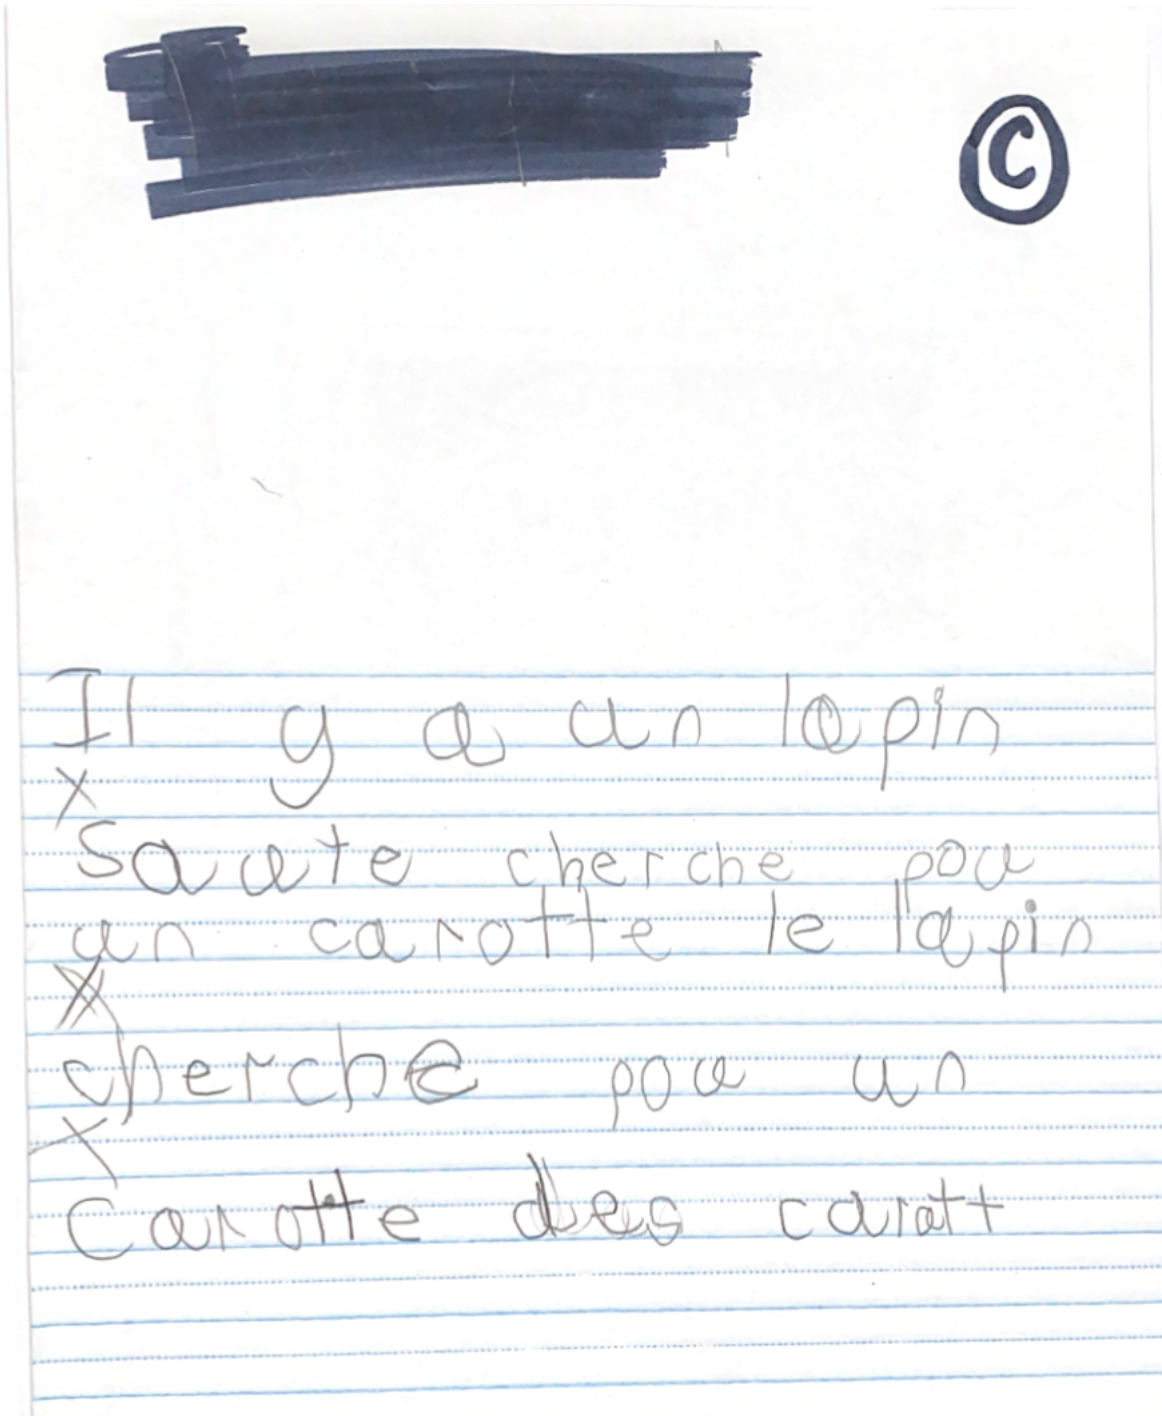 C
Il y a un lapin
x
Saute cherche pou
un carotte le lapin
x
cherche pou un
x
Carotte des caratt